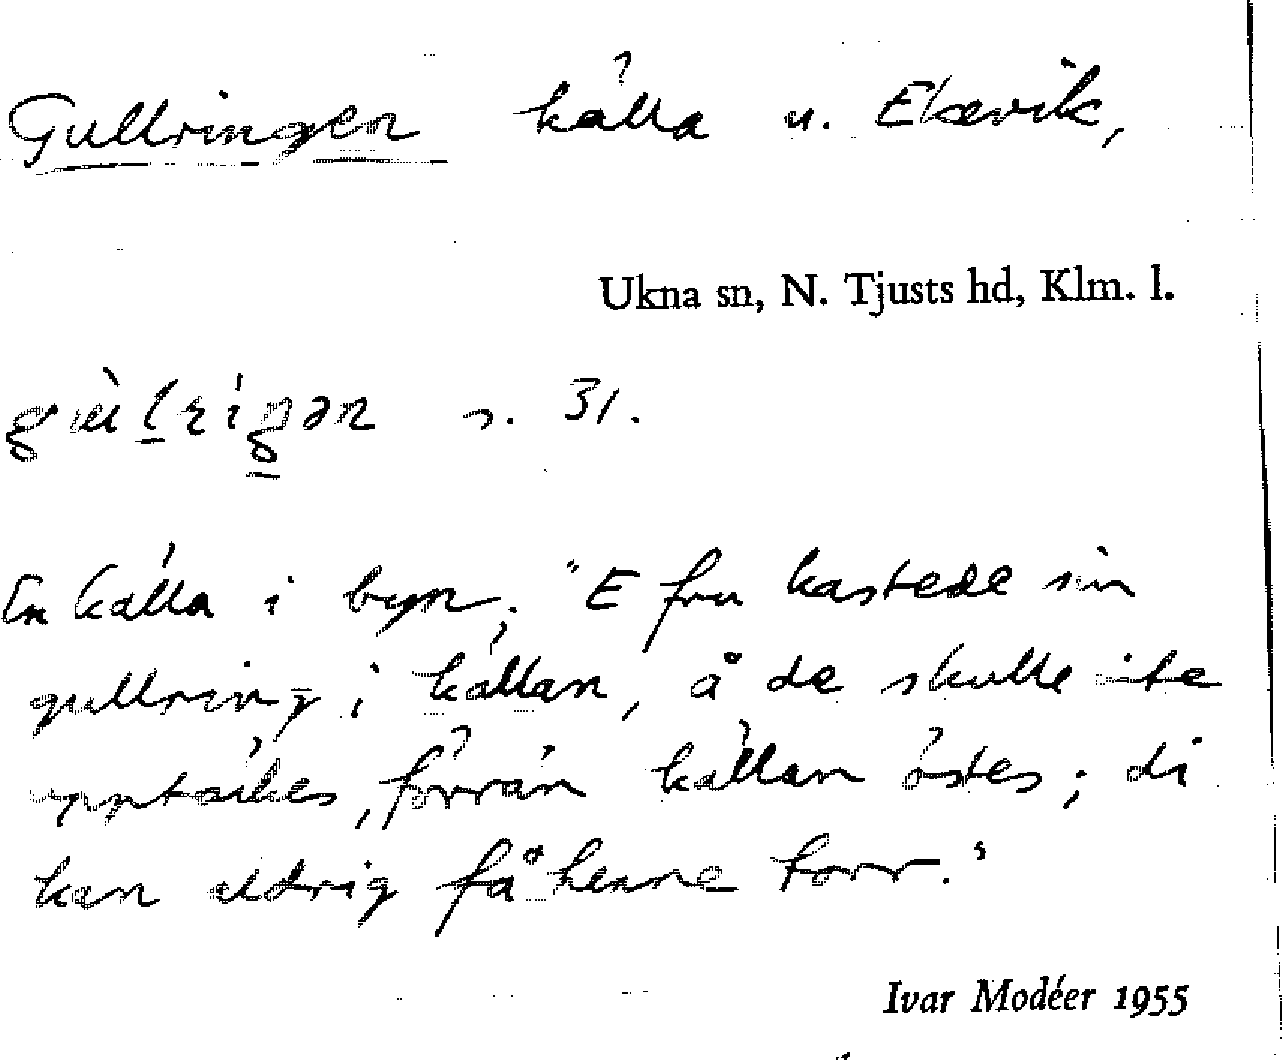 Gullringen källa u. Ekevik,
Ukna sn, N. Tjusts hd, Klm. l.
s. 31.
En källa i byn; "E fru kastede sin
gullring i källan, å de skulle ite
upptäckes, förrän källan östes; di
kan aldrig få henne torr."
Ivar Modéer 1955